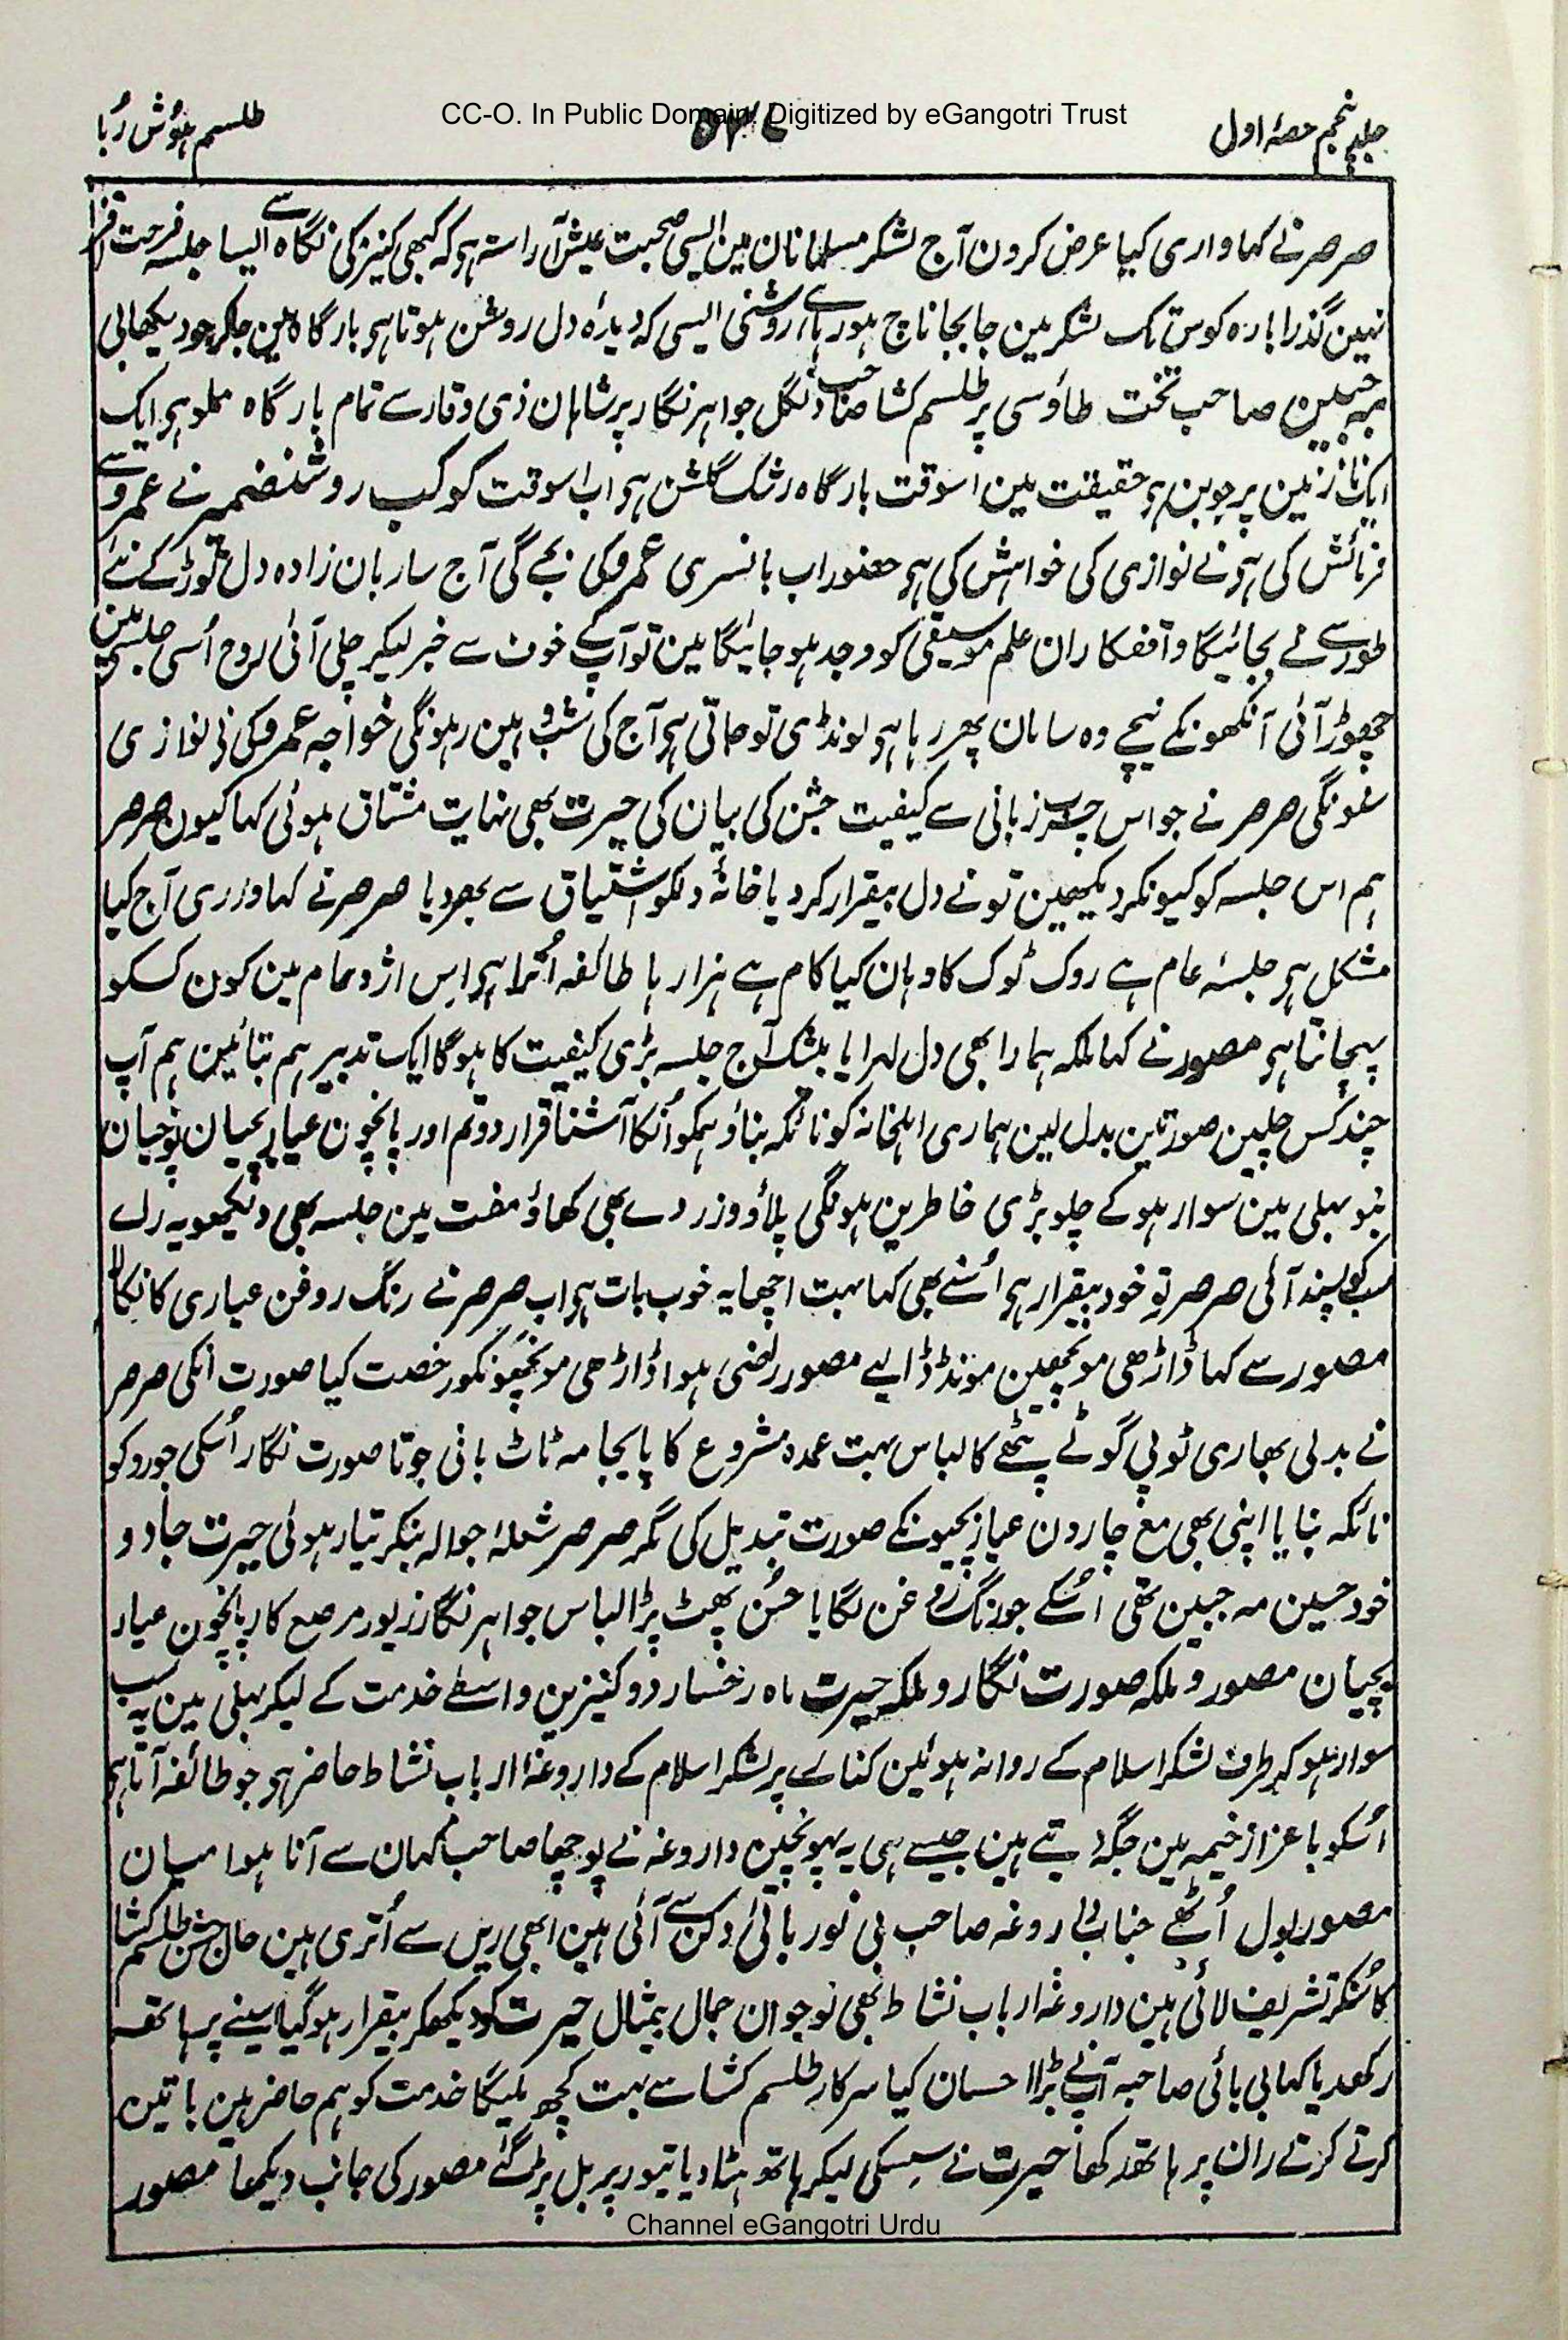 جلد پنجم حصۂ اول
CC-O. In Public Domain. Digitized by eGangotri Trust
طلسم ہوش رُبا
صرصر نے کہا واری کیا عرض کرون آج لشکر مسلمانان مین ایسی صحبت عیش آراستہ ہو کہ کبھی کنیز کی نگاہ سے ایسا جلسہ فرحت افزا
نہین گذرا بارہ کوس تک لشکر مین جا بجا ناچ ہو رہا ہے روشنی ایسی کہ دیدۂ دل روشن ہوتا ہو بارگاہ مین جا کر جو دیکھا بی
مہ جبین صاحب تخت طاؤسی پر طلسم کشا صاحب دنگل جواہر نگار پر شاہان ذی وقار سے تمام بارگاہ مملو ہو ایک
ایک نازنین پر جوبن ہو حقیقت مین اسوقت بارگاہ رشک گلشن ہو اب اسوقت کوکب روشنضمیر نے عمرو سے
فرمائش کی ہو نے نوازی کی خواہش کی ہو حضور اب بانسری عمرو کی بجے گی آج ساربان زادہ دل توڑ کے نئے
طور سے نے بجائیگا واقفکاران علم موسیقی کو وجد ہو جائیگا مین تو آپکے خوف سے خبر لیکر چلی آئی روح اُسی جلسہ مین
چھوڑ آئی آنکھونکے نیچے وہ سامان پھر رہا ہو لونڈی تو جاتی ہو آج کی شب وہین رہونگی خواجہ عمرو کی نے نوازی
سنونگی صرصر نے جو اس چرب زبانی سے کیفیت جشن کی بیان کی حیرت بھی نہایت مشتاق ہوئی کہا کیون صرصر
ہم اس جلسہ کو کیونکر دیکھین تو نے دل بیقرار کر دیا خانۂ دلکو اشتیاق سے بھر دیا صرصر نے کہا واری آج کیا
مشکل ہو جلسۂ عام ہے روک ٹوک کا وہان کیا کام ہے ہزار ہا طائفہ اُترا ہو اس اژدحام مین کون کسکو
پہچانتا ہو مصور نے کہا ملکہ ہمارا بھی دل لہرایا بیشک آج جلسہ بڑی کیفیت کا ہوگا ایک تدبیر ہم بتائین ہم آپ
چند کس چلین صورتین بدل لین ہماری اہلخانہ کو نائکہ بناؤ ہمکو اُنکا آشنا قرار دو تم اور پانچون عیار بچیان نوچیان
بنو بہلی مین سوار ہو کے چلو بڑی خاطرین ہونگی پلاؤ و زردے بھی کھاؤ مفت مین جلسہ بھی دیکھو یہ رائے
سب کو پسند آئی صرصر تو خود بیقرار ہو اُسنے بھی کہا بہت اچھا یہ خوب بات ہو اب صرصر نے رنگ روغن عیاری کا نکالا
مصور سے کہا ڈاڑھی مونچھین مونڈ ڈالیے مصور راضی ہوا ڈاڑھی مونچھونکو رخصت کیا صورت انکی صرصر
نے بدلی بھاری ٹوپی گوٹے پٹھے کا لباس بہت عمدہ مشروع کا پایجامہ ٹاٹ بافی جوتا صورت نگار اُسکی جورو کو
نائکہ بنایا اپنی بھی مع چارون عیار بچیونکے صورت تبدیل کی مگر صرصر شعلۂ جوالہ بنکر تیار ہوئی حیرت جادو
خود حسین مہ جبین تھی اُسکے جو رنگ روغن لگایا حُسن پھٹ پڑا لباس جواہر نگار زیور مرصع کار پانچون عیار
بچیان مصور و ملکہ صورت نگار و ملکہ حیرت ماہ رخسار دو کنیزین واسطے خدمت کے لیکر بہلی مین یہ سب
سوار ہو کر طرف لشکر اسلام کے روانہ ہوئین کنارے پر لشکر اسلام کے داروغۂ ارباب نشاط حاضر ہو جو طائفہ آتا ہو
اُسکو با عزاز خیمہ مین جگہ دیتے ہین جیسے ہی یہ پہونچین داروغہ نے پوچھا صاحب کہان سے آنا ہوا میان
مصور بول اُٹھے جناب داروغہ صاحب بی نور بائی دکن سے آئی ہین ابھی ریل سے اُتری ہین حال جشن طلسم کشا
کا سُنکر تشریف لائی ہین داروغۂ ارباب نشاط بھی نوجوان جمال بیمثال حیرت کو دیکھکر بیقرار ہو گیا سینے پر ہاتھ
رکھدیا کہا بی بائی صاحبہ آپنے بڑا احسان کیا سرکار طلسم کشا سے بہت کچھ ملیگا خدمت کو ہم حاضر ہین باتین
کرتے کرتے ران پر ہاتھ رکھا حیرت نے سسکی لیکر ہاتھ ہٹا دیا تیور پر بل پڑ گئے مصور کی جانب دیکھا مصور
Channel eGangotri Urdu